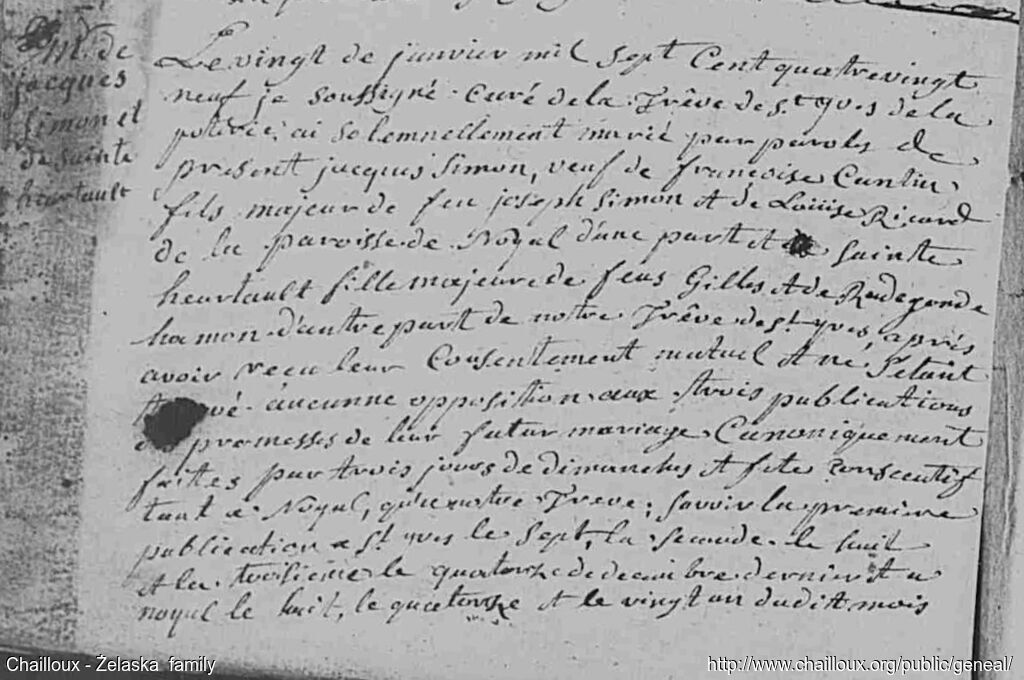 M. de
jacques
simon et
de sainte
heurtault
Le vingt de janvier mil sept Cent quatrevingt
neuf je soussigné Curé de la Trêve de St yves de la
ai solemnellement marié par paroles de
présent jacques Simon, veuf de francoise Cantin
fils majeur de feu joseph Simon et de Louise Ricard
de la paroisse de Noyal d'une part et sainte
heurtault fille majeure de feus Gilles et de Radegonde
hamon d'autre part de notre Trêve de St yves, après
avoir reçu leur Consentement mutuel et ne s'étant
aucunne opposition aux trois publications
promesses de leur futur mariage Canoniquement
faites par trois jours de dimanches et fete consecutif
tant a Noyal, qu'en notre Treve; savoir la premiere
publication a St yves le sept, la seconde le huit
et la troisieme le quatorze de decembre dernier et a
noyal le huit, le quatorze et le vingt un dudit mois
Chailloux - Żelaska family
http://www.chailloux.org/public/geneal/